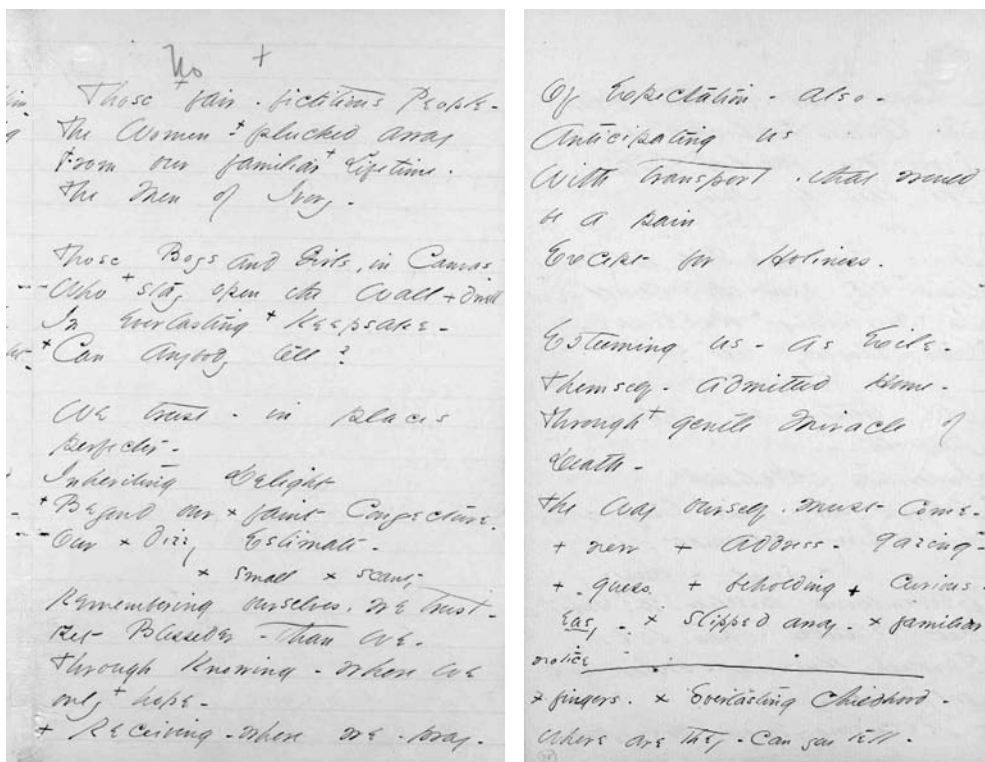 +
Those + fair - fictitious People -
The Women + plucked away
From our familiar + Lifetime -
The Men of Ivory -
Those Boys and Girls, in Canvas -
Who + stay upon the Wall + dwell
In Everlasting + Keepsake -
+ Can Anybody tell?
We trust - in places
perfecter -
Inheriting Delight
+ Beyond our x faint Conjecture -
Our x dizzy Estimate -
x small x scanty
Remembering ourselves, we trust -
Yet Blesseder - than We -
Through Knowing - where We
only + hope -
+ Receiving - where we - pray -
Of Expectation - also -
Anticipating us
With transport, that would
be a pain
Except for Holiness -
Esteeming us - as Exile -
Themself - admitted Home -
Through + gentle Miracle of
Death -
The Way ourself, must come -
+ new + Address - gazing -
+ guess + beholding + Curious -
Easy - x slipped away - x familiar
notice
x fingers - x Everlasting Childhood -
Where are they - Can you tell -